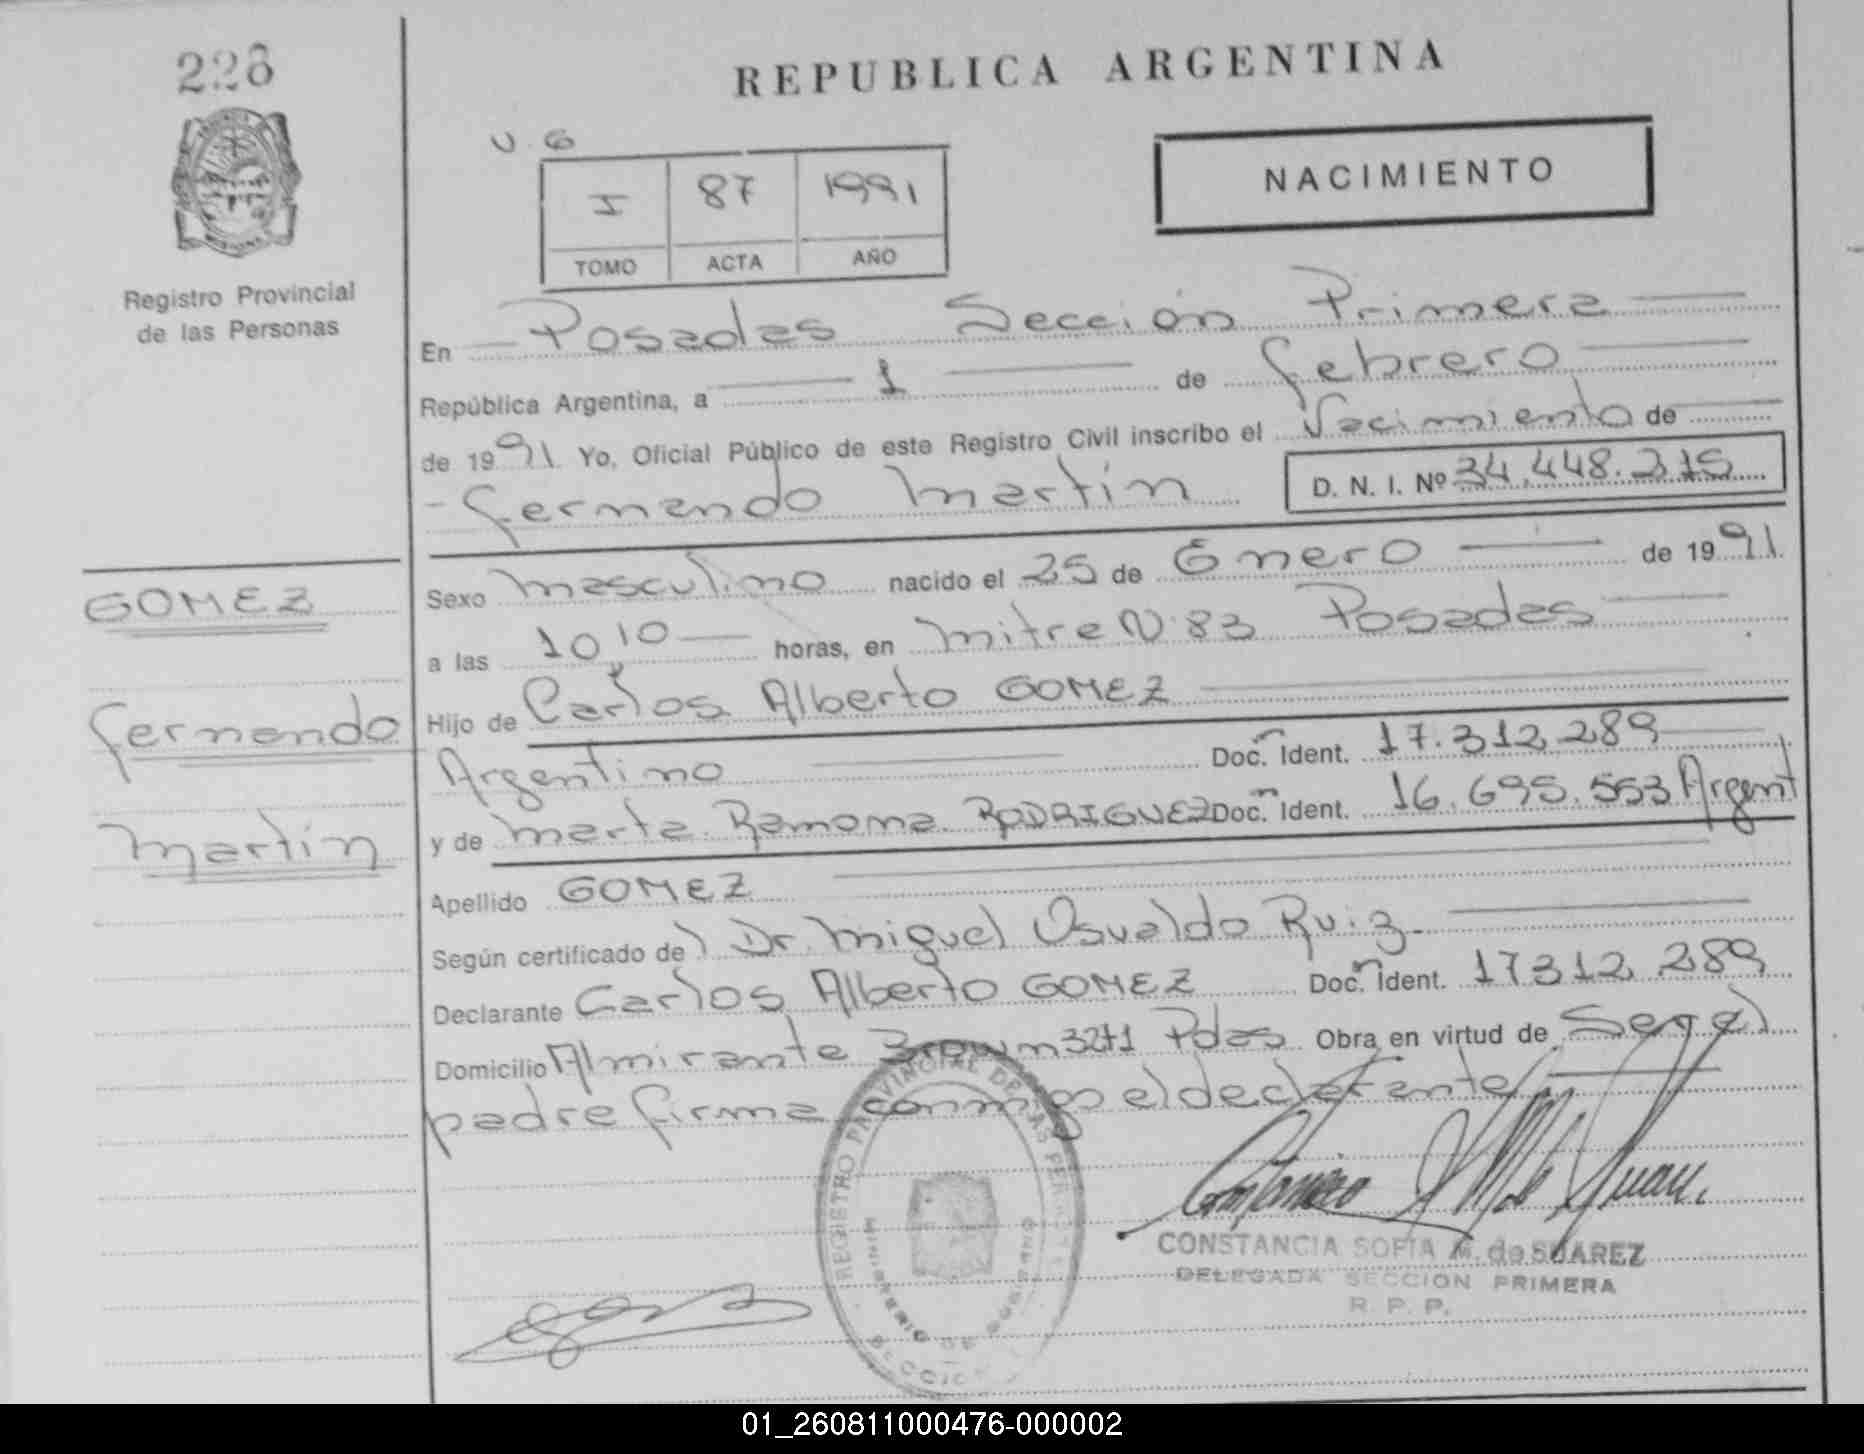 228
REPUBLICA ARGENTINA
V. G
I 87 1991
TOMO ACTA AÑO
NACIMIENTO
Registro Provincial
de las Personas
En Posadas Sección Primera
República Argentina, a 1 de febrero
de 1991 Yo, Oficial Público de este Registro Civil inscribo el Nacimiento de
Fernando Martín D. N. I. Nº 34.448.215
GOMEZ
Fernando
Martín
Sexo masculino nacido el 25 de Enero de 1991
a las 10 10 horas, en Mitre N 83 Posadas
Hijo de Carlos Alberto GOMEZ
Argentino Doc. Ident. 17.312.289
y de Marta Ramona RODRIGUEZ Doc. Ident. 16.695.553 Argent
Apellido GOMEZ
Según certificado del Dr. Miguel Osvaldo Ruiz
Declarante Carlos Alberto GOMEZ Doc. Ident. 17312289
Domicilio Almirante Brown 3271 Pdas Obra en virtud de Ser el
padre firma conmigo el declarante
REGISTRO PROVINCIAL DE LAS PER
MINISTERIO DE GOBIERNO
SECCIO
CONSTANCIA SOFIA M. de SUAREZ
DELEGADA SECCION PRIMERA
R. P. P.
01_260811000476-000002